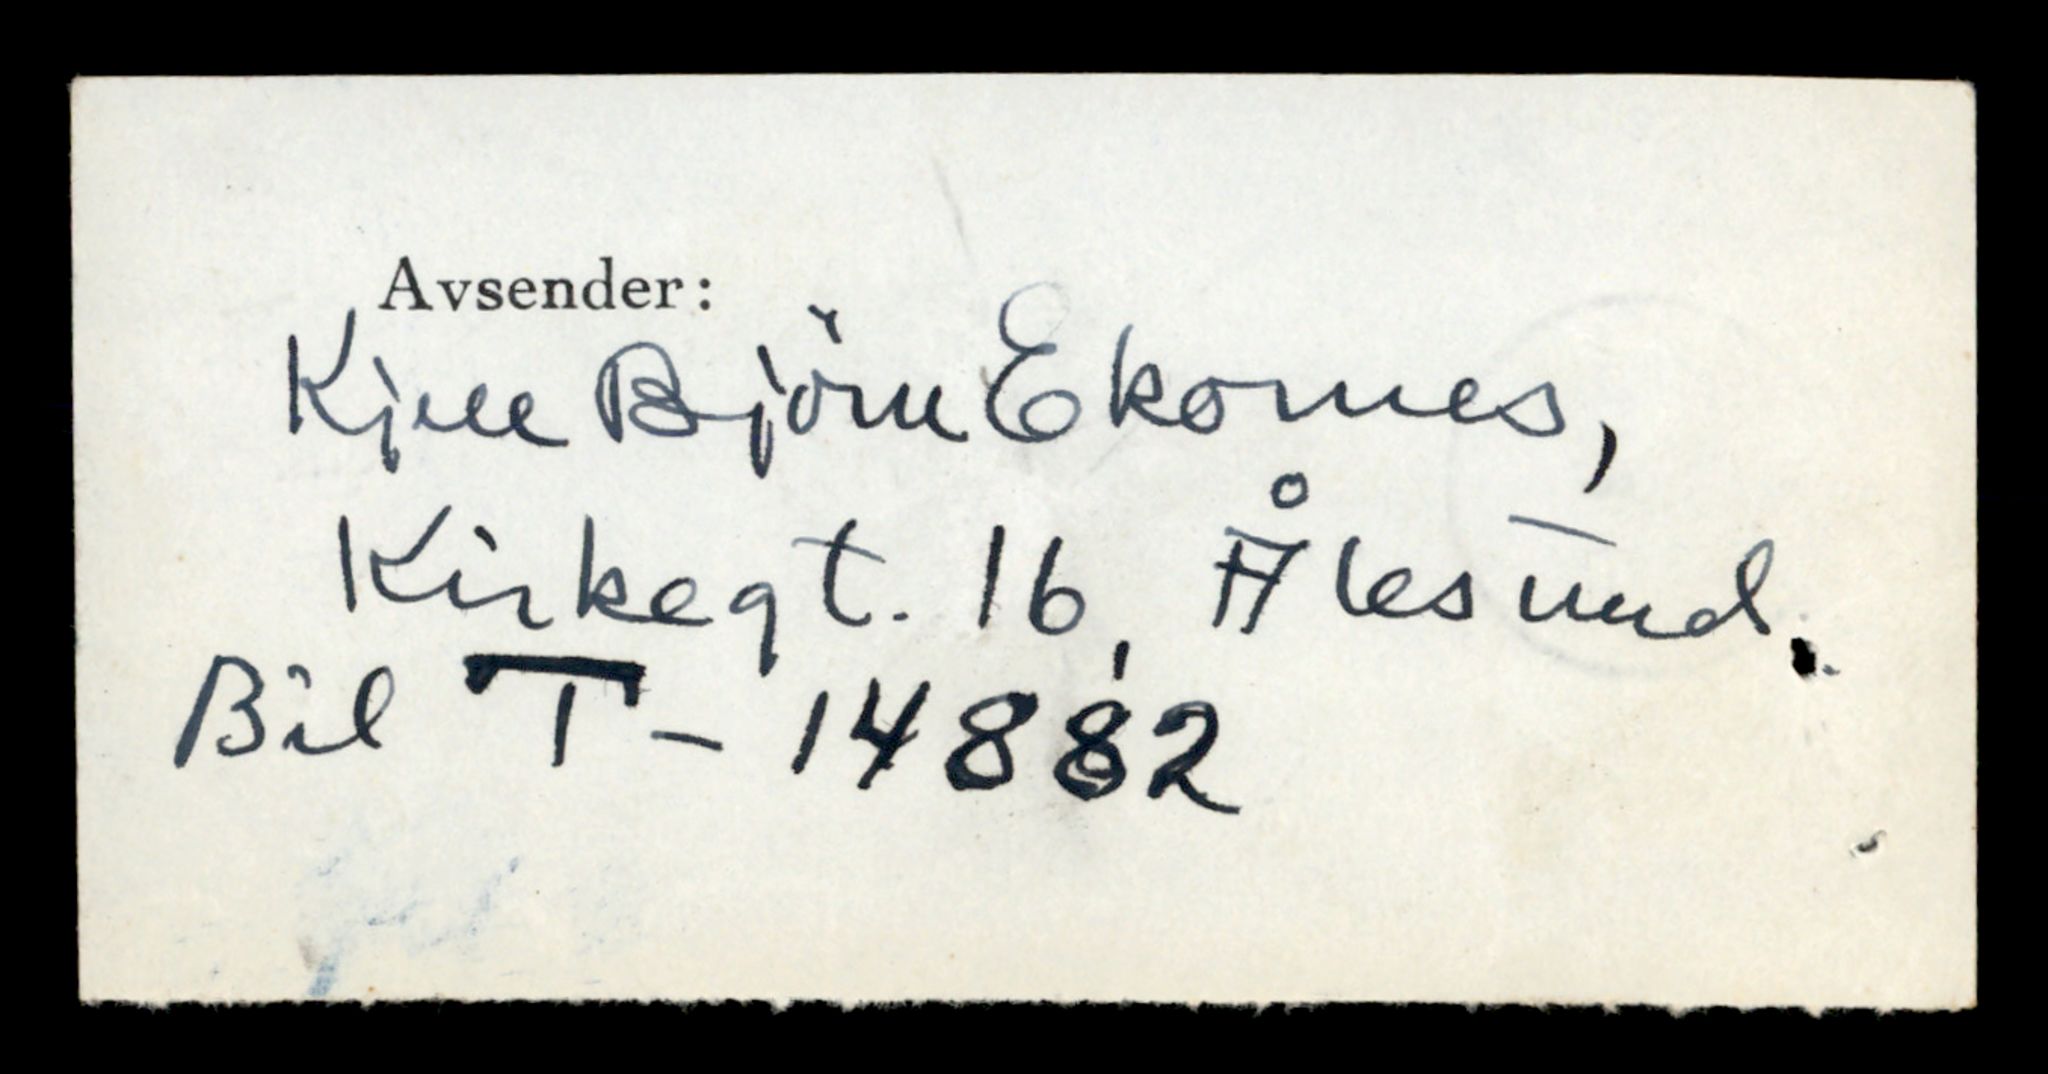 Avsender:
Kjell Björn Ekornes,
Kirkegt. 16, Ålesund.
Bil T - 14882